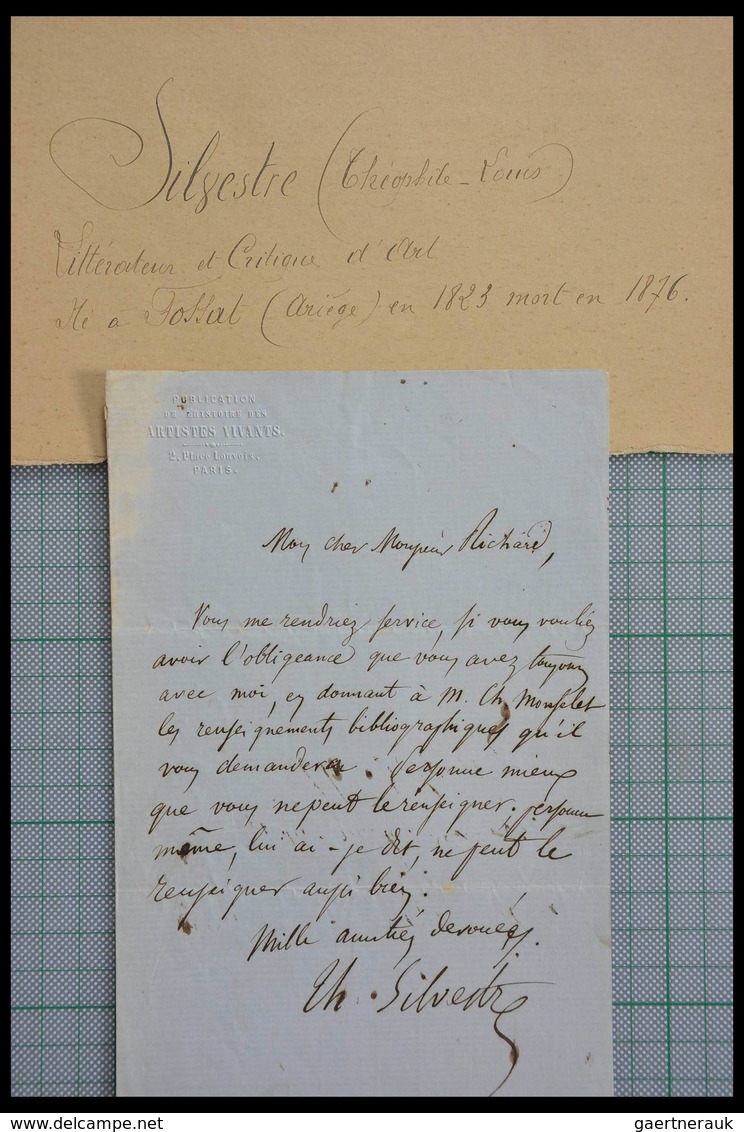 Silvestre (Théophile-Louis)
Littérateur et Critique d'Art
Né à Fossat (Ariège) en 1823 mort en 1876.
PUBLICATION
DE L'HISTOIRE DES
ARTISTES VIVANTS.
2, Place Louvois,
PARIS.
Mon cher Monsieur Richard,
Vous me rendriez service, si vous vouliez
avoir l'obligeance que vous avez toujours
avec moi, en donnant à M. Ch. Monselet
les renseignements bibliographiques qu'il
vous demandera. Personne mieux
que vous ne peut le renseigner; personne
même, lui ai-je dit, ne peut le
renseigner aussi bien.
Mille amitiés dévouées.
Th. Silvestre
delcampe.net
gaertnerauk